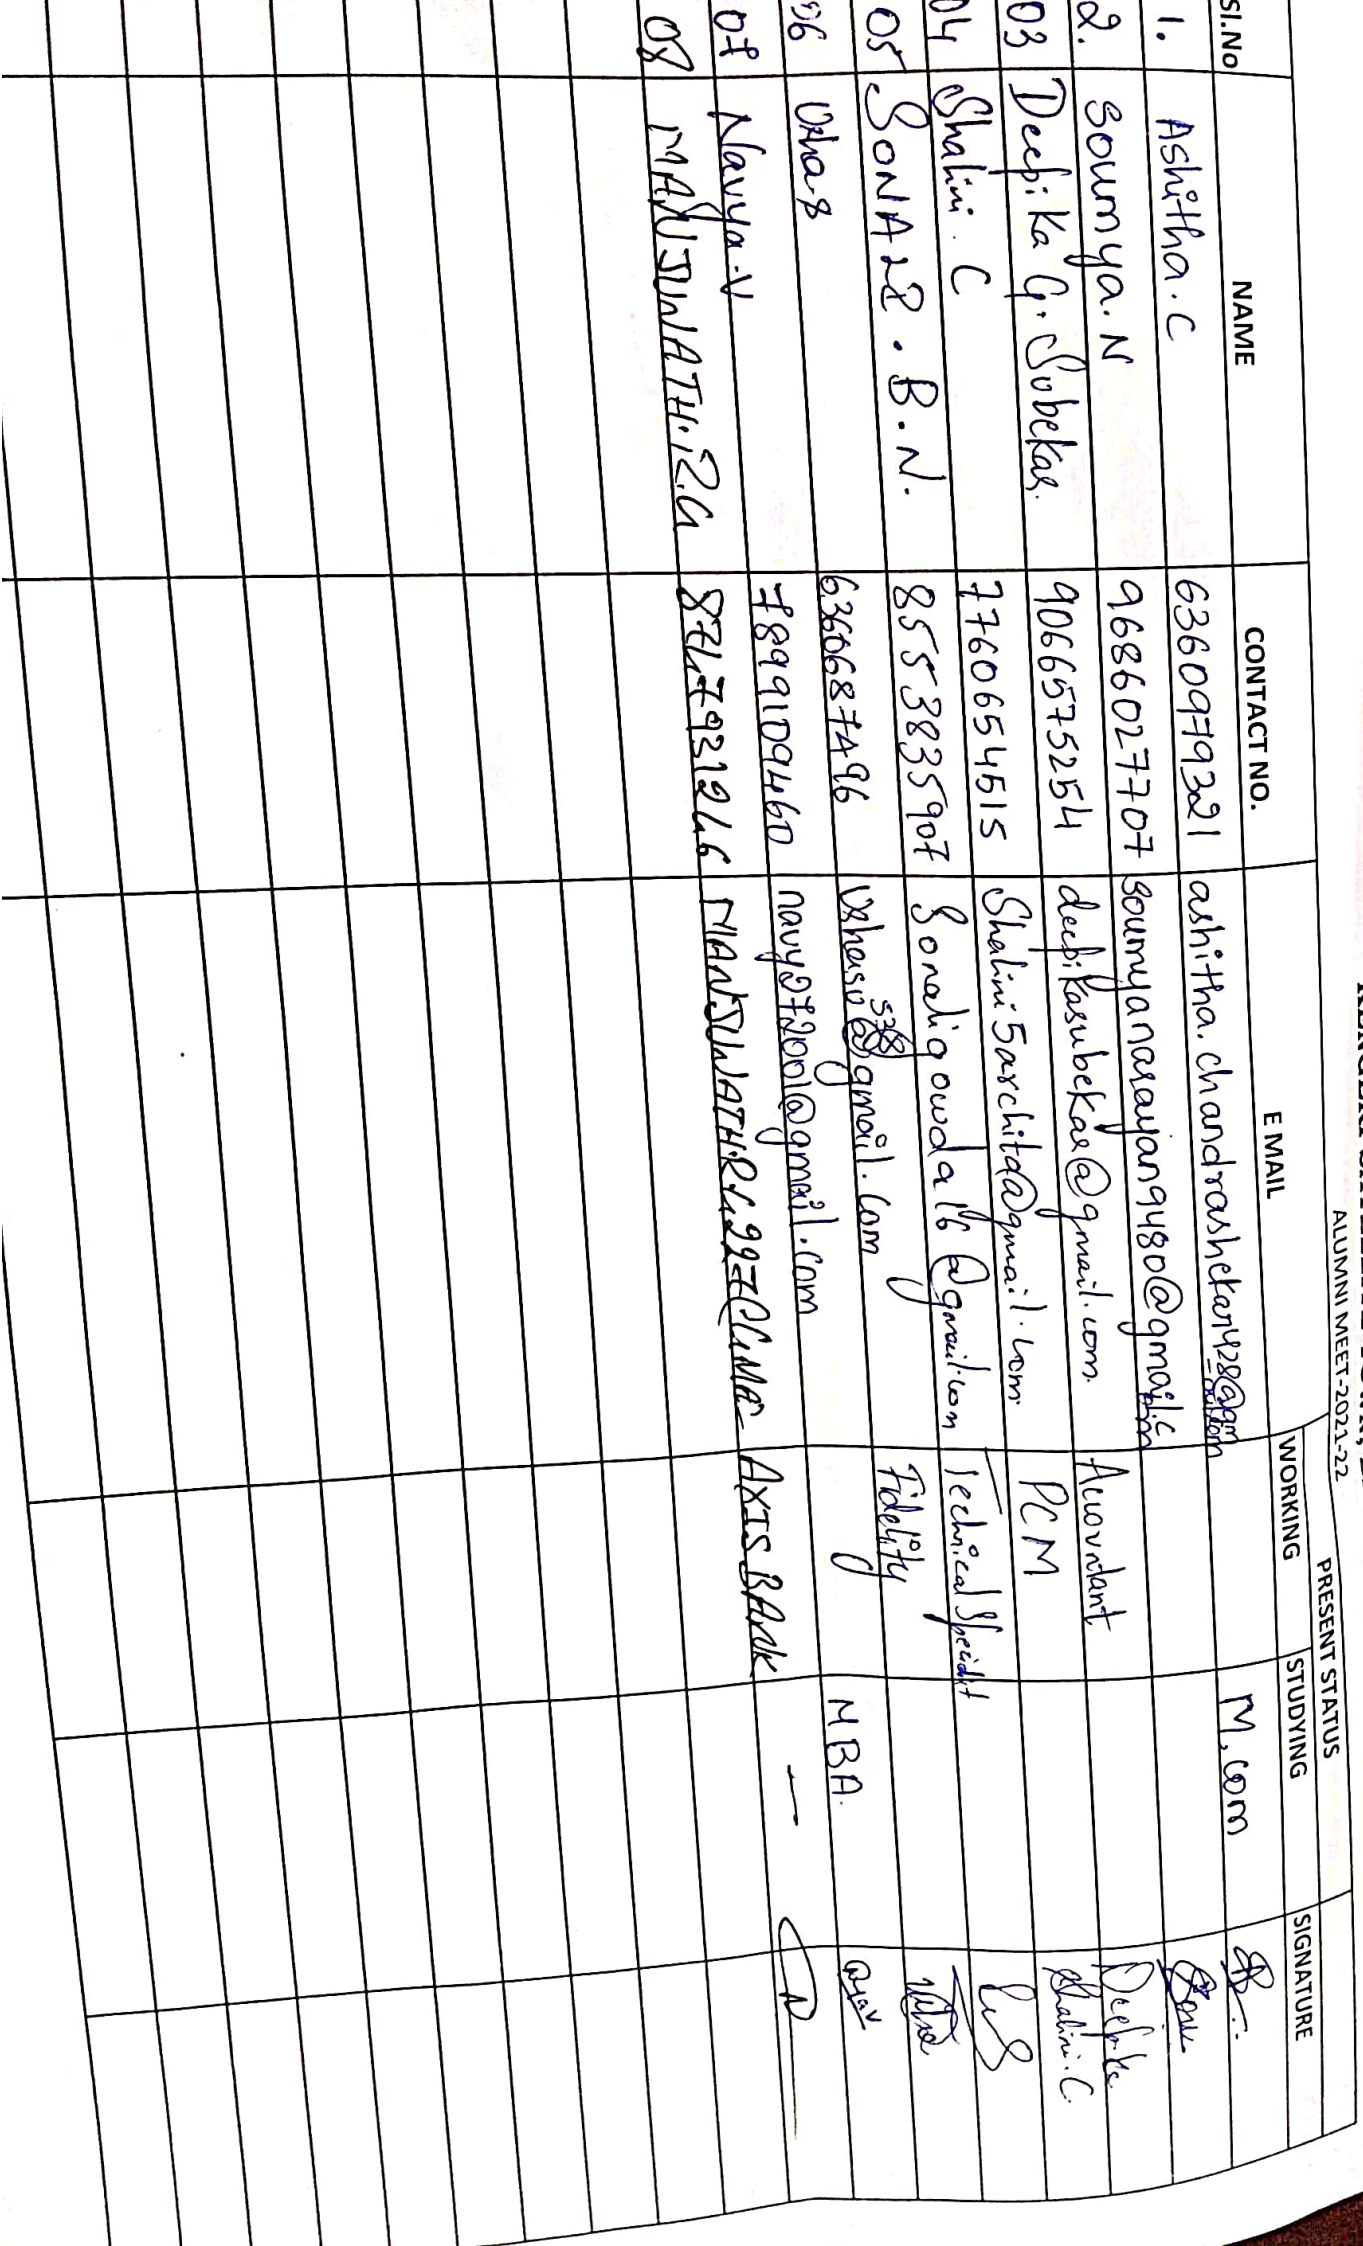 ALUMNI MEET-2021-22
SI.No NAME CONTACT NO. E MAIL PRESENT STATUS SIGNATURE
WORKING STUDYING
1. Ashitha.C 6360979321 ashitha.chandrashekar428@gm M.com
2. Soumya.N 9686027707 soumyanarayan9480@gmail.com
03 Deepika G. Subekar. 9066575254 deepikasubekar@gmail.com. Accountant Deepika
04 Shalini.C 7760654515 Shalini5archita@gmail.com PCM Shalini.C
05 SONA B.N. 8553835907 Sonaligowda16@gmail.com Technical Specialist
06 Usha.S 6360687496 Ushasu538@gmail.com Fidelity
07 Navya.V 7899109460 navy272001@gmail.com MBA.
08 MANJUNATH.R.G 8747931246 MANJUNATHRG227@GMAI- AXIS BANK —